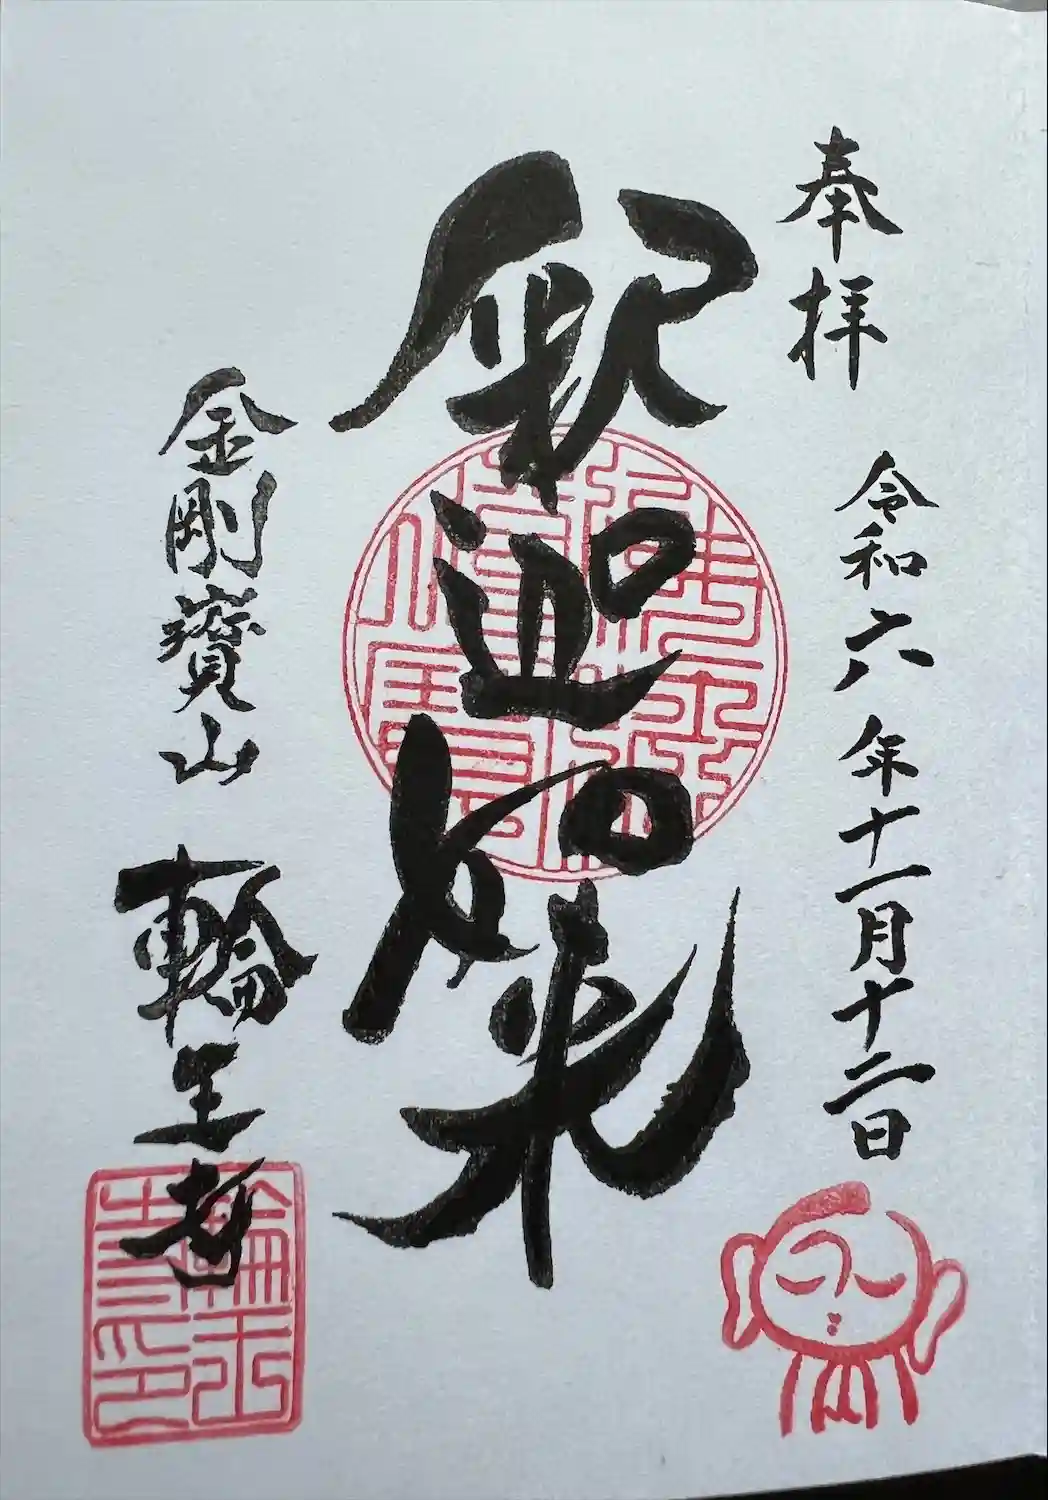 奉拝
令和六年十一月十二日
釈迦如来
金剛寶山
輪王寺